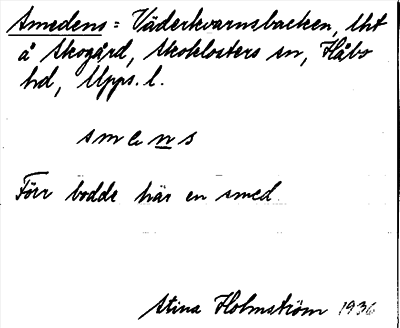 Smedens = Väderkvarnsbacken, tht
å Skogård, Skoklosters sn, Håbo
hd, Upps. l.
s m e n s
Förr bodde här en smed.
Stina Holmström 1936